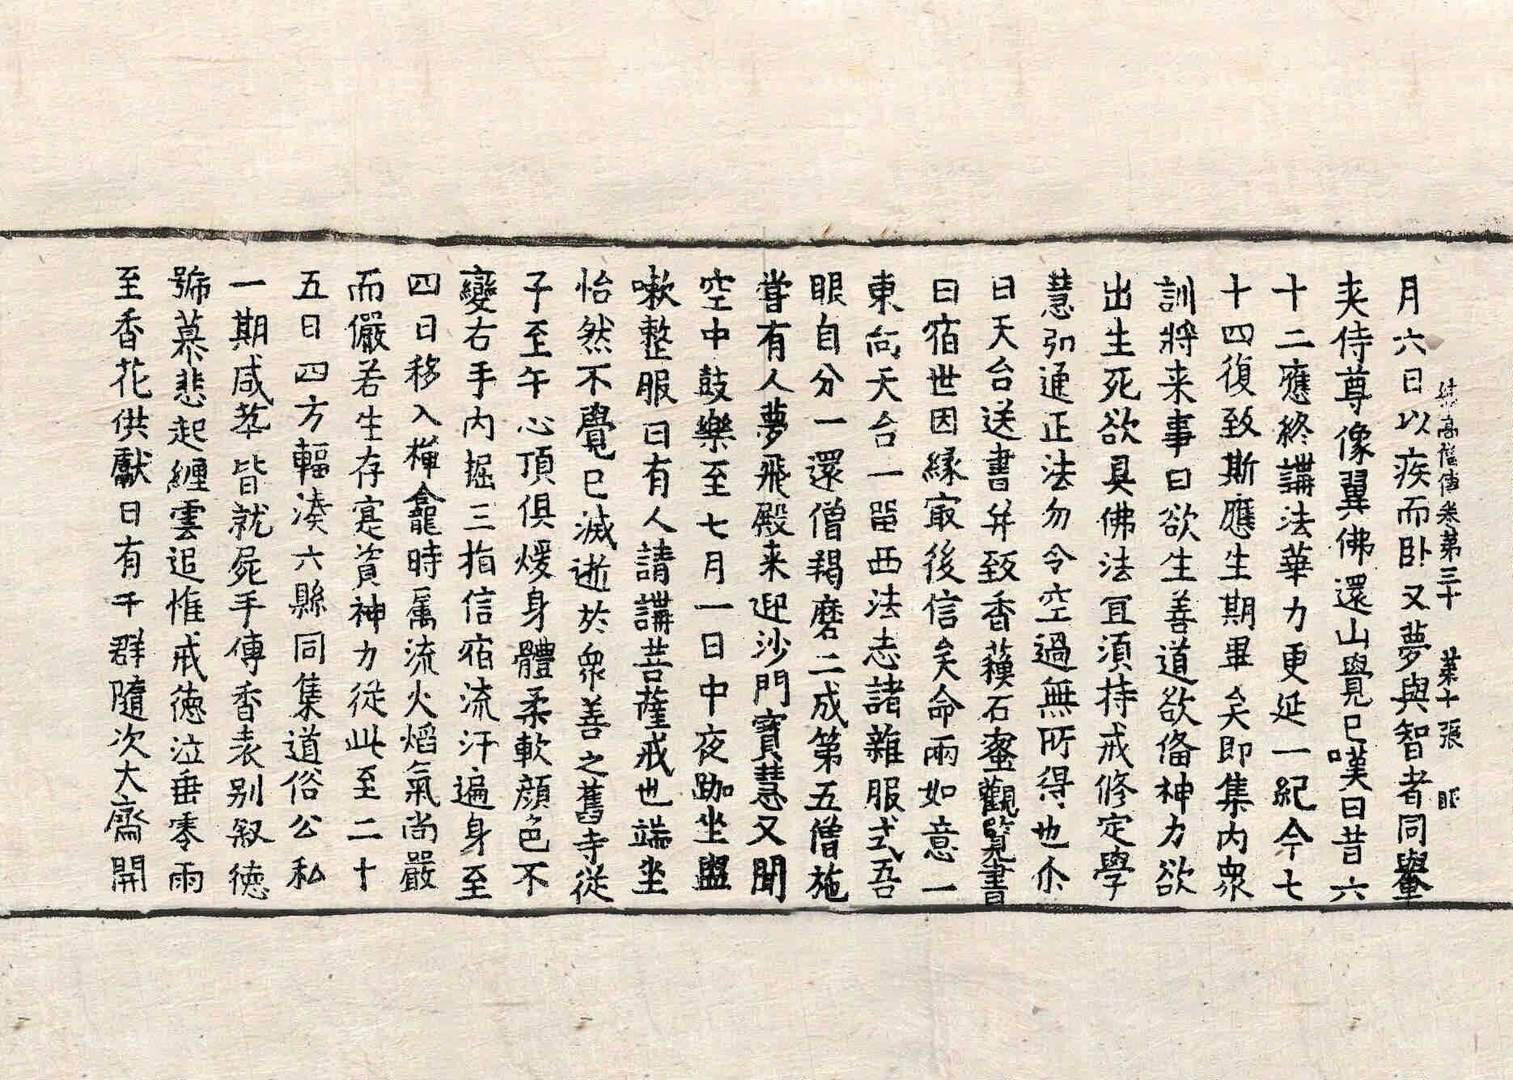 續高僧傳卷第三十 第十張 眠
月六日以疾而卧又夢與智者同轝
夾侍尊像翼佛還山覺已嘆曰昔六
十二應終講法華力更延一紀今七
十四復致斯應生期畢矣即集内衆
訓將来事曰欲生善道欲俻神力欲
出生死欲具佛法冝須持戒修定學
慧弘通正法勿令空過無所得也尒
日天台送書并致香蘓石蜜觀覽書
曰宿世因縁㝡後信矣命兩如意一
東向天台一留西法志諸雜服式吾
眼自分一還僧羯磨二成第五僧施
甞有人夢飛殿来迎沙門寶慧又聞
空中鼓樂至七月一日中夜跏坐盥
嗽整服曰有人請講菩薩戒也端坐
怡然不覺已滅逝於衆善之舊寺従
子至午心頂俱煖身體柔軟顔色不
變右手内掘三指信宿流汗遍身至
四日移入禪龕時屬流火焰氣尚嚴
而儼若生存寔資神力従此至二十
五日四方輻湊六縣同集道俗公私
一期咸萃皆就屍手傳香表别叙徳
號慕悲起纏雲追惟戒徳泣垂零雨
至香花供獻日有千群隨次大齋開